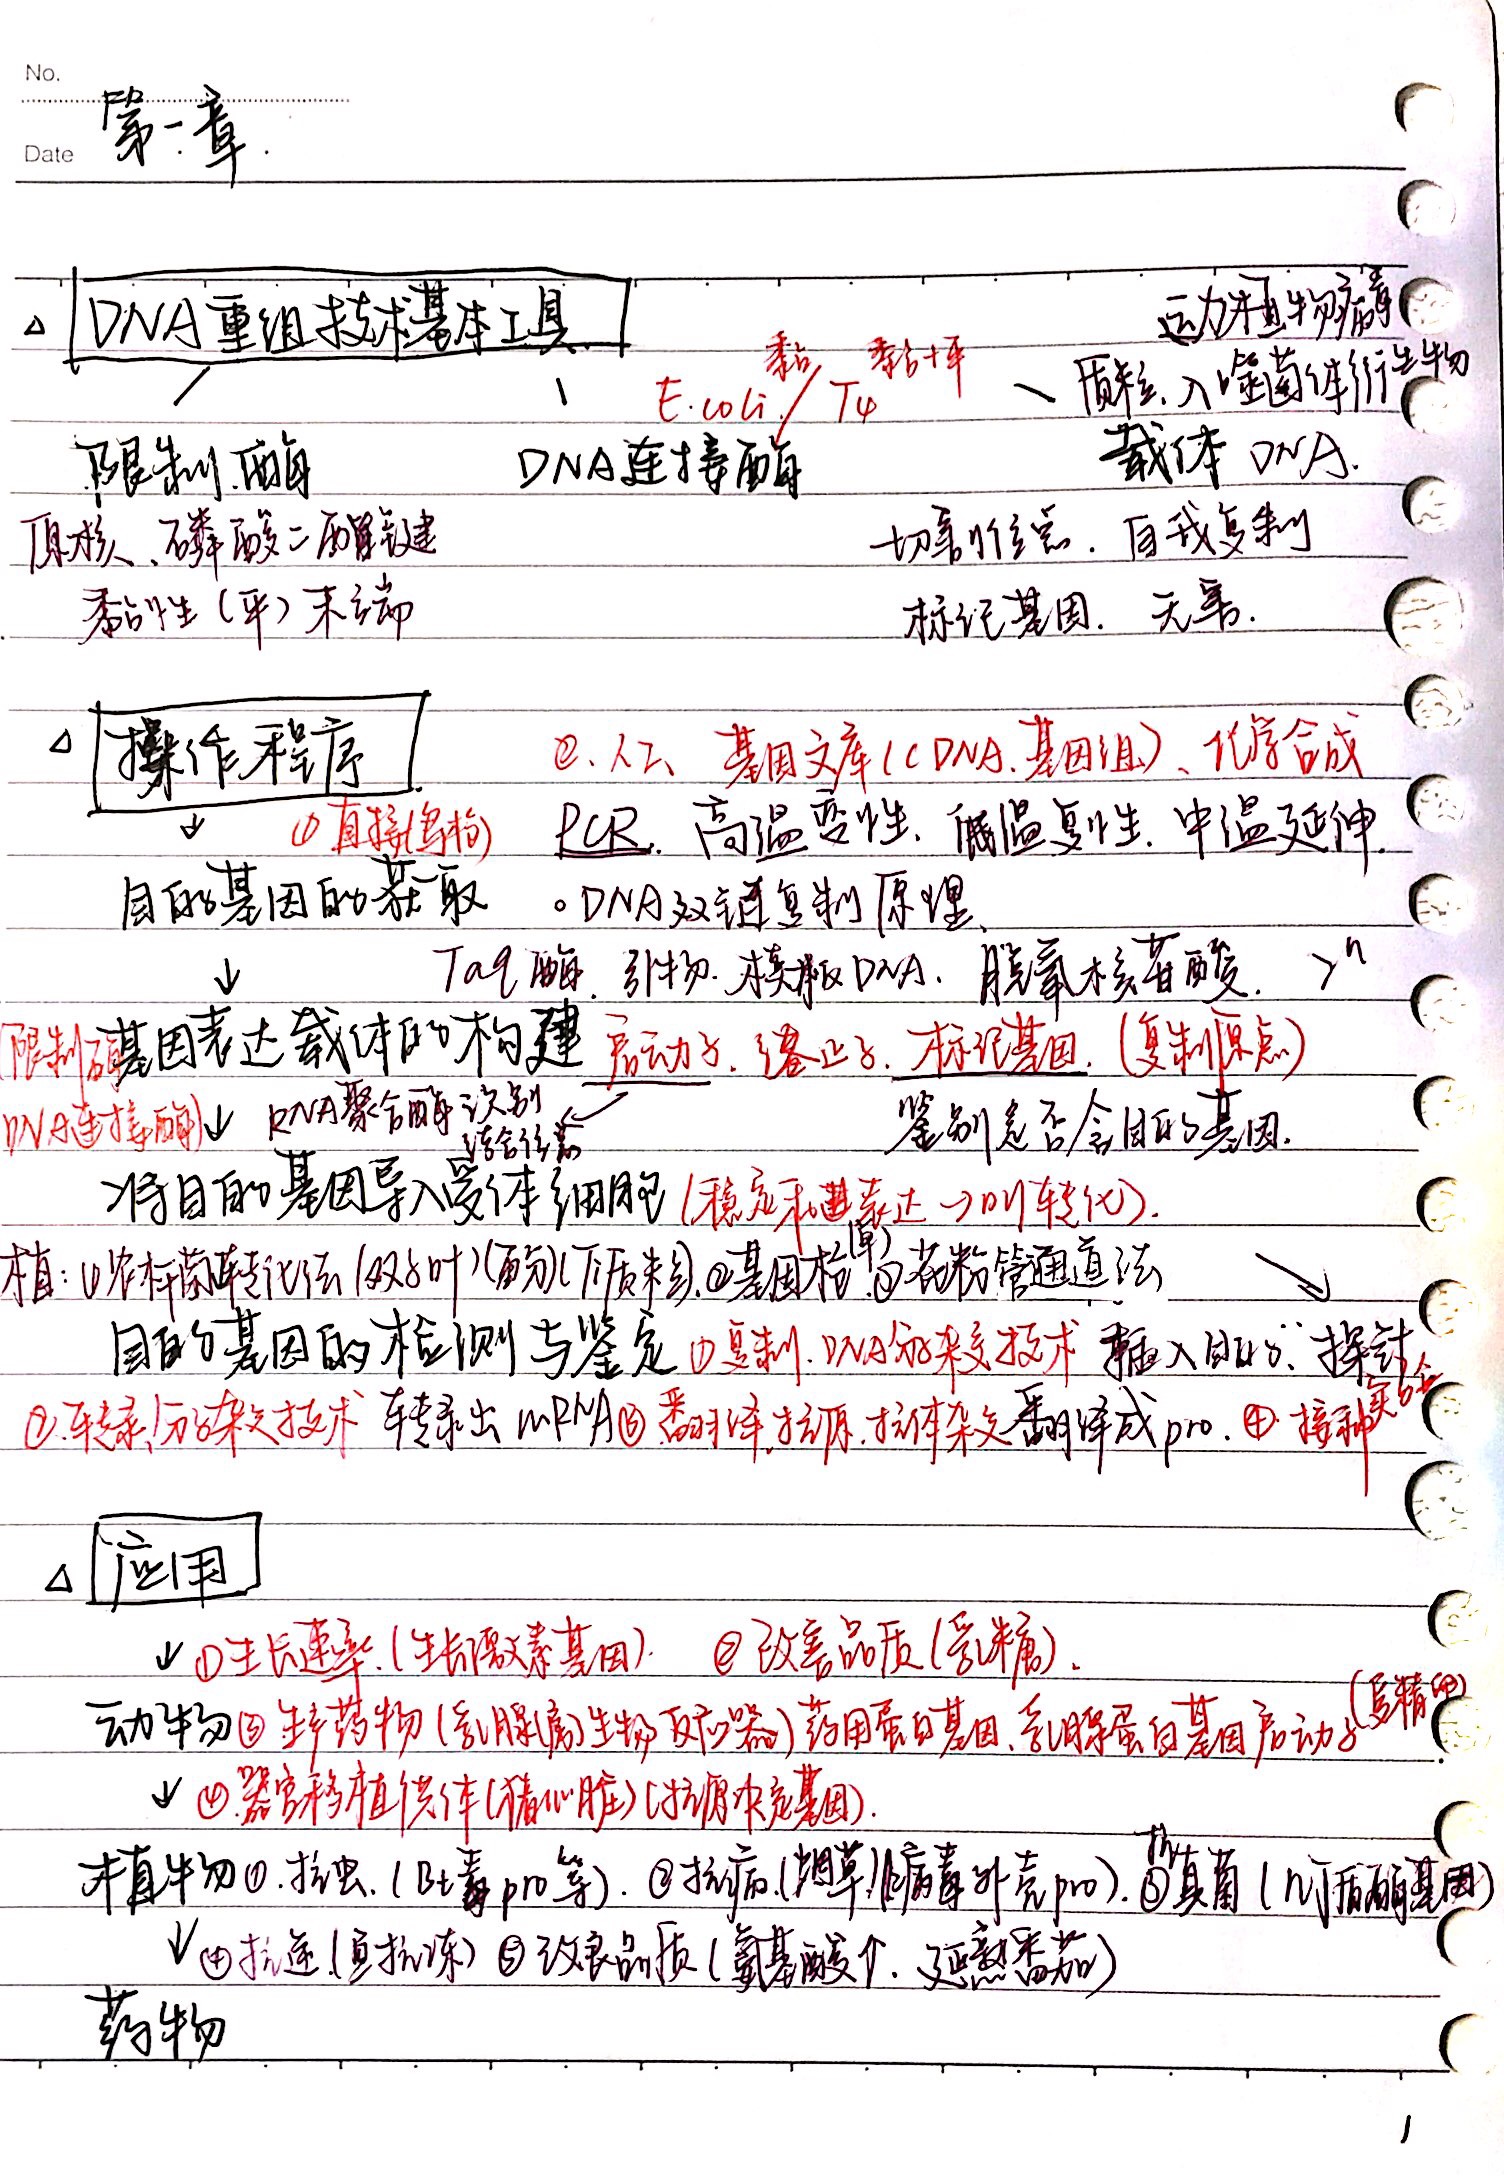 No.
Date 第一章.
△ DNA重组技术基本工具
动植物病毒
黏 黏+平 质粒、λ噬菌体衍生物
E.coli / T4
限制酶 DNA连接酶 载体 DNA.
磷酸二酯键 切割位点. 自我复制
黏性(平)末端 标记基因. 无害.
△ 操作程序 ②.人工 基因文库(cDNA、基因组)、化学合成
↓ ①直接(鸟枪) PCR. 高温变性. 低温复性. 中温延伸.
目的基因的获取 。DNA双链复制原理.
↓ Taq酶. 引物. 模板DNA. 脱氧核苷酸. >n
限制酶 基因表达载体的构建 启动子. 终止子. 标记基因. (复制原点)
DNA连接酶) ↓ RNA聚合酶识别 ← 鉴别是否含目的基因.
结合位点
将目的基因导入受体细胞(稳定和表达→叫转化).
植: ①农杆菌转化法(双子叶)(酚)(Ti质粒).②基因枪(单)③花粉管通道法 ↘
目的基因的检测与鉴定 ①复制.DNA分子杂交技术 插入目的. 探针
②.转录.分子杂交技术 转录出mRNA③翻译.抗原.抗体杂交 翻译成pro. ④接种实验
△ 应用
↓ ①生长速率.(生长激素基因). ②改善品质(乳糖).
动物③生产药物(乳腺(房)生物反应器)药用蛋白基因.乳腺蛋白基因启动子(受精卵)
↓ ④.器官移植供体(猪心脏)(抗原决定基因).
植物①.抗虫.(Bt毒pro等). ②抗病.(烟草花病毒外壳pro).③抗真菌(几丁质酶基因)
↓④抗逆.(鱼抗冻) ⑤改良品质(氨基酸↑. 延熟番茄)
药物
1